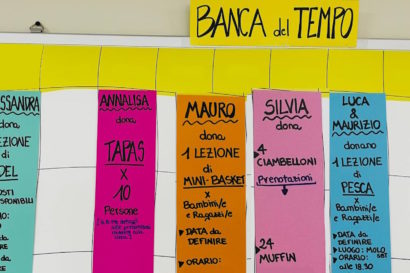 BANCA del TEMPO
SSANDRA
dona
LEZIONE
di
DEL
OSTI
SPONIBILI
ANNALISA
dona
TAPAS
x
10
Persone
MAURO
dona
1 LEZIONE
di
MINI-BASKET
x
Bambini/e
e Ragazzi/e
DATA da
DEFINIRE
ORARIO:
SILVIA
dona
4
CIAMBELLONI
Prenotazioni
24
MUFFIN
LUCA
&
MAURIZIO
donano
1 LEZIONE
di
PESCA
x
Bambini/e
e Ragazzi/e
DATA da
DEFINIRE
LUOGO: MOLO
SBT
ORARIO:
alle 18.30